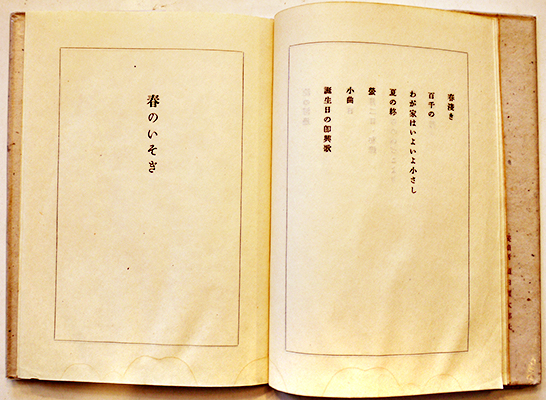 春浅き
百千の
わが家はいよいよ小さし
夏の終
螢
小曲
誕生日の即興歌
春のいそぎ